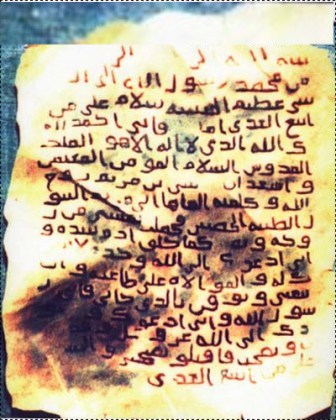 من محمد رسول الله الى
شي عظيم الحبشة سلام على من
اتبع الهدى اما واني احمد
ك الله الذي لا اله الا هو الملك
القدوس السلام المومن المهيمن
و اشهد ان عيسى بن مريم روح
الله و كلمته القاها الى مريم البتو
ل الطيبه الحصينه فحملت بعيسى من ر
وحه و نفخه كما خلق ادم بيده و
اني ادعوك الى الله وحده
له و الموالاه على طاعته و ان
تتبعني و توقن بالذي جاني فاني ر
سول الله و اني ادعوك
دك الى الله عز و جل
ت و نصحت فاقبلوا نصيحتي
على من اتبع الهدى